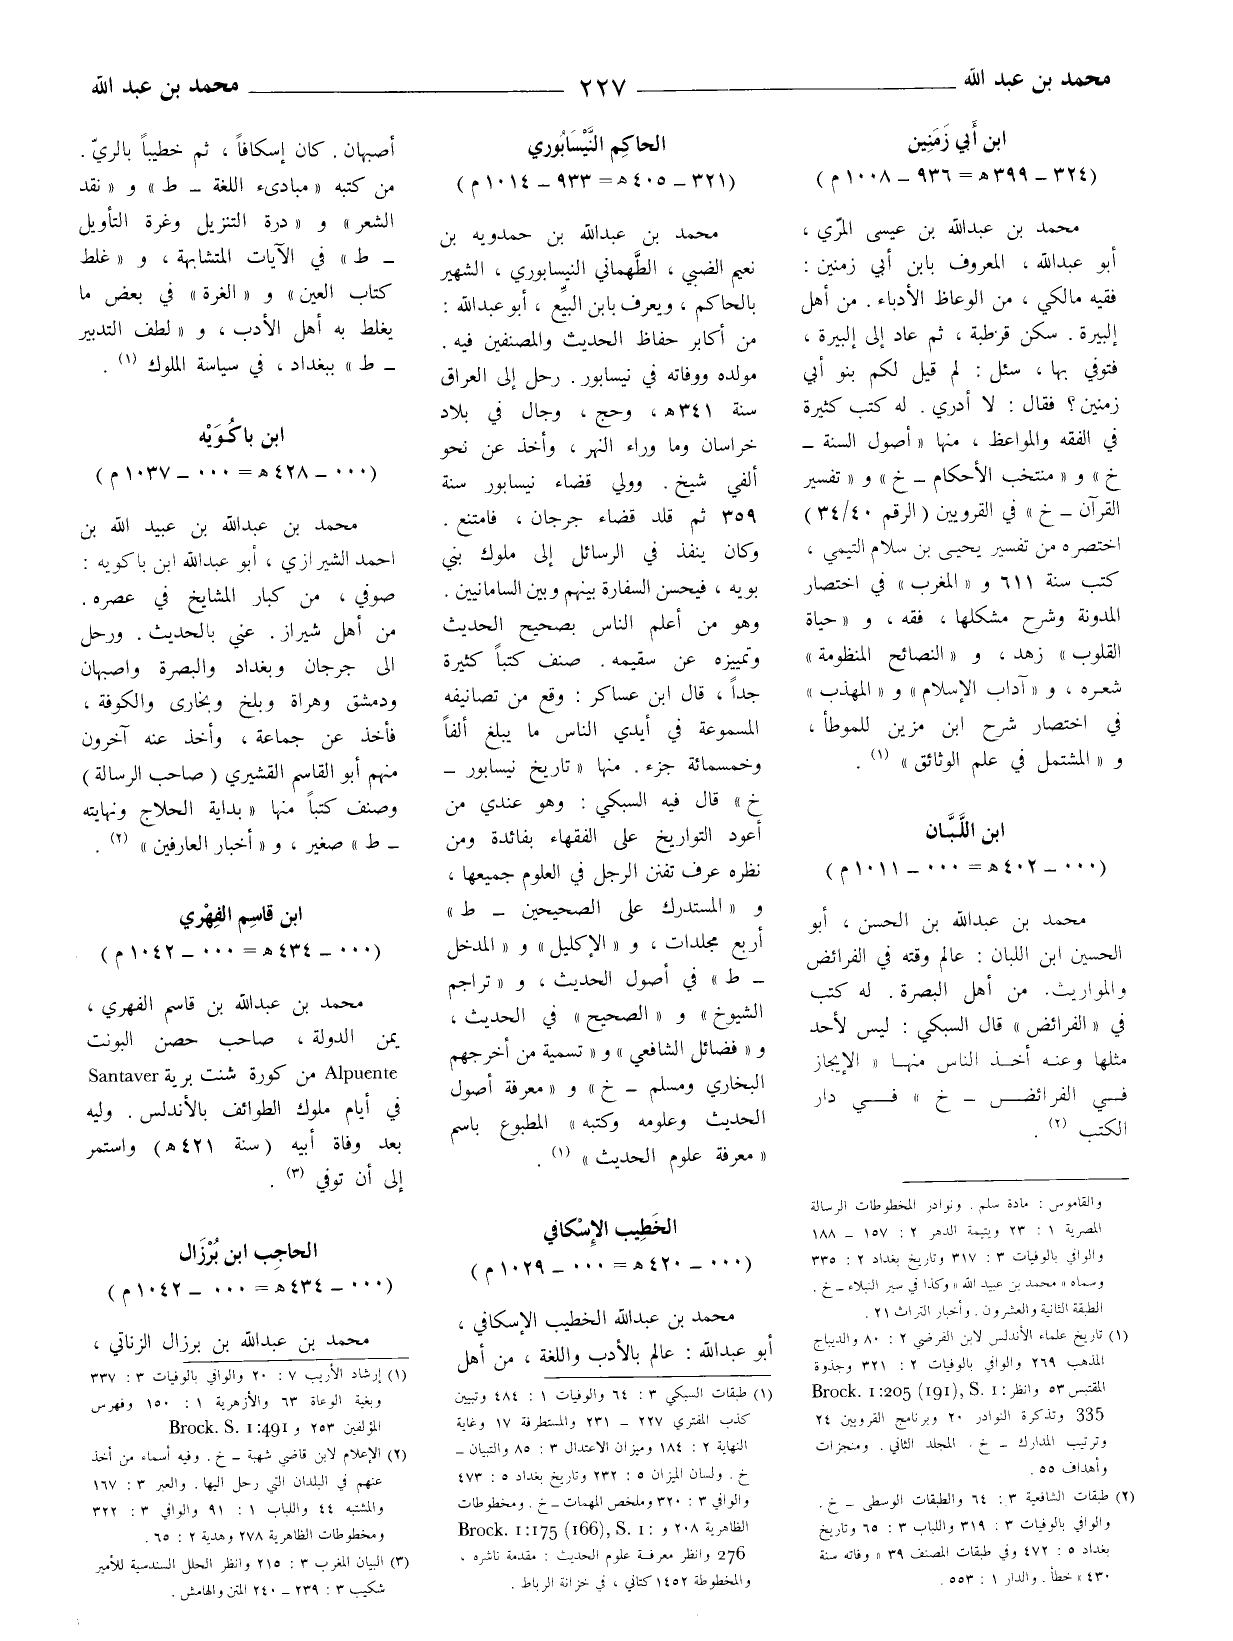 محمد بن عبد الله ٢٢٧ محمد بن عبد الله
ابن أَبي زَمَنِين
(٣٢٤ – ٣٩٩ ه = ٩٣٦ – ١٠٠٨ م)
محمد بن عبدالله بن عيسى المرّي ،
أبو عبدالله ، المعروف بابن أبي زمنين :
فقيه مالكي ، من الوعاظ الأدباء . من أهل
إلبيرة . سكن قرطبة ، ثم عاد إلى إلبيرة ،
فتوفي بها ، سئل : لم قيل لكم بنو أبي
زمنين ؟ فقال : لا أدري . له كتب كثيرة
في الفقه والمواعظ ، منها « أصول السنة –
خ » و « منتخب الأحكام – خ » و « تفسير
القرآن – خ » في القرويين ( الرقم ٣٤/٤٠ )
اختصره من تفسير يحيى بن سلام التيمي ،
كتب سنة ٦١١ و « المغرب » في اختصار
المدونة وشرح مشكلها ، فقه ، و « حياة
القلوب » زهد ، و « النصائح المنظومة »
شعره ، و « آداب الإسلام » و « المهذب »
في اختصار شرح ابن مزين للموطأ ،
و « المشتمل في علم الوثائق » (١) .
ابن اللَّبَّان
(٠٠٠ – ٤٠٢ ه = ٠٠٠ – ١٠١١ م)
محمد بن عبدالله بن الحسن ، أبو
الحسين ابن اللبان : عالم وقته في الفرائض
والمواريث. من أهل البصرة . له كتب
في « الفرائض » قال السبكي : ليس لأحد
مثلها وعنه أخذ الناس منها « الإيجاز
في الفرائض – خ » في دار
الكتب (٢) .
والقاموس : مادة سلم . ونوادر المخطوطات الرسالة
المصرية ١ : ٢٣ ويتيمة الدهر ٢ : ١٥٧ – ١٨٨
والوافي بالوفيات ٣ : ٣١٧ وتاريخ بغداد ٢ : ٣٣٥
وسماه « محمد بن عبيد الله » وكذا في سير النبلاء – خ .
الطبقة الثانية والعشرون . وأخبار التراث ٢١ .
(١) تاريخ علماء الأندلس لابن الفرضي ٢ : ٨٠ والديباج
المذهب ٢٦٩ والوافي بالوفيات ٢ : ٣٢١ وجذوة
المقتبس ٥٣ وانظر Brock. 1:205 (191), S. 1:
335 وتذكرة النوادر ٢٠ وبرنامج القرويين ٢٤
وترتيب المدارك – خ . المجلد الثاني . ومنجزات
وأهداف ٥٥ .
(٢) طبقات الشافعية ٣ : ٦٤ والطبقات الوسطى – خ .
والوافي بالوفيات ٣ : ٣١٩ واللباب ٣ : ٦٥ وتاريخ
بغداد ٥ : ٤٧٢ وفي طبقات المصنف ٣٩ « وفاته سنة
٤٣٠ » خطأ . والدار ١ : ٥٥٣ .
الحاكِم النَّيْسَابُوري
(٣٢١ – ٤٠٥ ه = ٩٣٣ – ١٠١٤ م)
محمد بن عبدالله بن حمدويه بن
نعيم الضبي ، الطَّهماني النيسابوري ، الشهير
بالحاكم ، ويعرف بابن البيِّع ، أبو عبدالله :
من أكابر حفاظ الحديث والمصنفين فيه .
مولده ووفاته في نيسابور . رحل إلى العراق
سنة ٣٤١ ه ، وحج ، وجال في بلاد
خراسان وما وراء النهر ، وأخذ عن نحو
ألفي شيخ . وولي قضاء نيسابور سنة
٣٥٩ ثم قلد قضاء جرجان ، فامتنع .
وكان ينفذ في الرسائل إلى ملوك بني
بويه ، فيحسن السفارة بينهم وبين السامانيين .
وهو من أعلم الناس بصحيح الحديث
وتمييزه عن سقيمه . صنف كتباً كثيرة
جداً ، قال ابن عساكر : وقع من تصانيفه
المسموعة في أيدي الناس ما يبلغ ألفاً
وخمسمائة جزء . منها « تاريخ نيسابور –
خ » قال فيه السبكي : وهو عندي من
أعود التواريخ على الفقهاء بفائدة ومن
نظره عرف تفنن الرجل في العلوم جميعها ،
و « المستدرك على الصحيحين – ط »
أربع مجلدات ، و « الإكليل » و « المدخل
– ط » في أصول الحديث ، و « تراجم
الشيوخ » و « الصحيح » في الحديث ،
و « فضائل الشافعي » و « تسمية من أخرجهم
البخاري ومسلم – خ » و « معرفة أصول
الحديث وعلومه وكتبه » المطبوع باسم
« معرفة علوم الحديث » (١) .
الخَطِيب الإِسْكافي
(٠٠٠ – ٤٢٠ ه = ٠٠٠ – ١٠٢٩ م)
محمد بن عبدالله الخطيب الإسكافي ،
أبو عبدالله : عالم بالأدب واللغة ، من أهل
(١) طبقات السبكي ٣ : ٦٤ والوفيات ١ : ٤٨٤ وتبيين
كذب المفتري ٢٢٧ – ٢٣١ والمستطرفة ١٧ وغاية
النهاية ٢ : ١٨٤ وميزان الاعتدال ٣ : ٨٥ والتبيان –
خ . ولسان الميزان ٥ : ٢٣٢ وتاريخ بغداد ٥ : ٤٧٣
والوافي ٣ : ٣٢٠ وملخص المهمات – خ . ومخطوطات
الظاهرية ٢٠٨ و Brock. 1:175 (166), S. 1:
276 وانظر معرفة علوم الحديث : مقدمة ناشره ،
والمخطوطة ١٤٥٢ كتاني ، في خزانة الرباط .
أصبهان . كان إسكافاً ، ثم خطيباً بالريّ .
من كتبه « مبادىء اللغة – ط » و « نقد
الشعر » و « درة التنزيل وغرة التأويل
– ط » في الآيات المتشابهة ، و « غلط
كتاب العين » و « الغرة » في بعض ما
يغلط به أهل الأدب ، و « لطف التدبير
– ط » ببغداد ، في سياسة الملوك (١) .
ابن باكُوَيْه
(٠٠٠ – ٤٢٨ ه = ٠٠٠ – ١٠٣٧ م)
محمد بن عبدالله بن عبيد الله بن
احمد الشيرازي ، أبو عبدالله ابن باكويه :
صوفي ، من كبار المشايخ في عصره .
من أهل شيراز . عني بالحديث . ورحل
الى جرجان وبغداد والبصرة واصبهان
ودمشق وهراة وبلخ وبخارى والكوفة ،
فأخذ عن جماعة ، وأخذ عنه آخرون
منهم أبو القاسم القشيري ( صاحب الرسالة )
وصنف كتباً منها « بداية الحلاج ونهايته
– ط » صغير ، و « أخبار العارفين » (٢) .
ابن قاسِم الفِهْري
(٠٠٠ – ٤٣٤ ه = ٠٠٠ – ١٠٤٢ م)
محمد بن عبدالله بن قاسم الفهري ،
يمن الدولة ، صاحب حصن البونت
Alpuente من كورة شنت برية Santaver
في أيام ملوك الطوائف بالأندلس . وليه
بعد وفاة أبيه (سنة ٤٢١ ه) واستمر
إلى أن توفي (٣) .
الحاجِب ابن بُرْزَال
(٠٠٠ – ٤٣٤ ه = ٠٠٠ – ١٠٤٢ م)
محمد بن عبدالله بن برزال الزناتي ،
(١) إرشاد الأريب ٧ : ٢٠ والوافي بالوفيات ٣ : ٣٣٧
وبغية الوعاة ٦٣ والأزهرية ١ : ١٥٠ وفهرس
المؤلفين ٢٥٣ و Brock. S. 1:491
(٢) الإعلام لابن قاضي شهبة – خ . وفيه أسماء من أخذ
عنهم في البلدان التي رحل اليها . والعبر ٣ : ١٦٧
والمشتبه ٤٤ واللباب ١ : ٩١ والوافي ٣ : ٣٢٢
ومخطوطات الظاهرية ٢٧٨ وهدية ٢ : ٦٥ .
(٣) البيان المغرب ٣ : ٢١٥ وانظر الحلل السندسية للأمير
شكيب ٣ : ٢٣٩ – ٢٤٠ المتن والهامش .